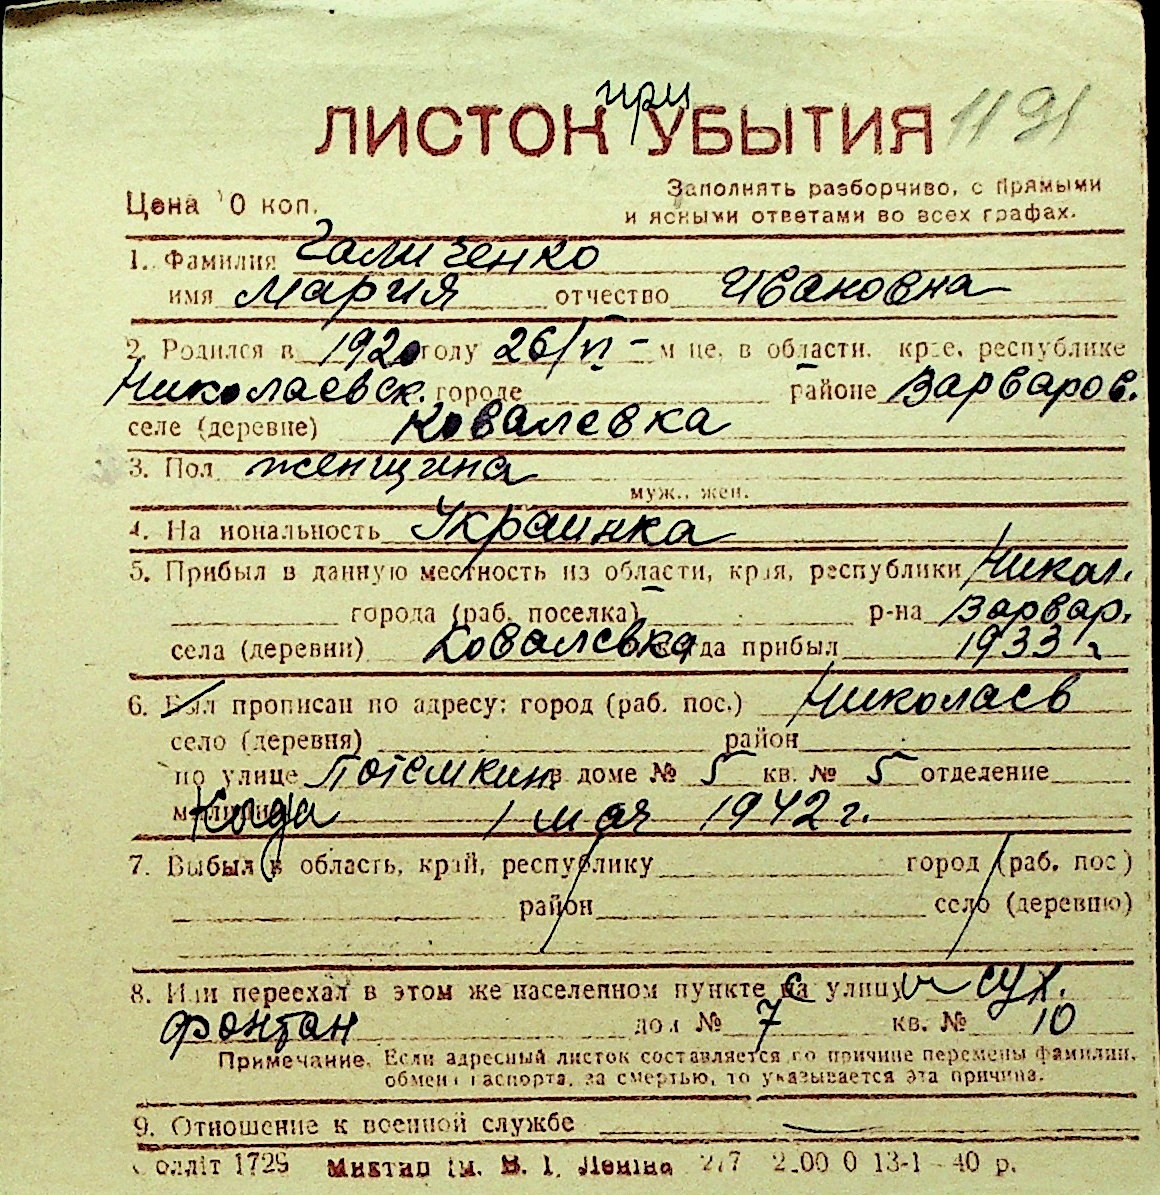 при
ЛИСТОК УБЫТИЯ 1191
Цена 10 коп. Заполнять разборчиво, с прямыми
и ясными ответами во всех графах.
1. Фамилия Галиченко
имя Мария отчество Ивановна
2. Родился в 1920 году 26/VI - м-це, в области, крае, республике
Николаевск. городе районе Варваров.
селе (деревне) Ковалевка
3. Пол женщина
муж., жен.
4. Национальность Украинка
5. Прибыл в данную местность из области, края, республики Никол.
города (раб. поселка) р-на Варвар.
села (деревни) Ковалевка когда прибыл 1933 г.
6. Был прописан по адресу: город (раб. пос.) Николаев
село (деревня) район
по улице Потемкин. в доме № 5 кв. № 5 отделение
милиции Когда 1 мая 1942 г.
7. Выбыл в область, край, республику город (раб. пос.)
район село (деревню)
8. Или переехал в этом же населенном пункте на улицу с Сух.
фонтан дом № 7 кв. № 10
Примечание. Если адресный листок составляется по причине перемены фамилии,
обмена паспорта, за смертью, то указывается эта причина.
9. Отношение к военной службе —
оллліт 1729 Миктип ім. В. І. Леніна 13-1 - 40 р.